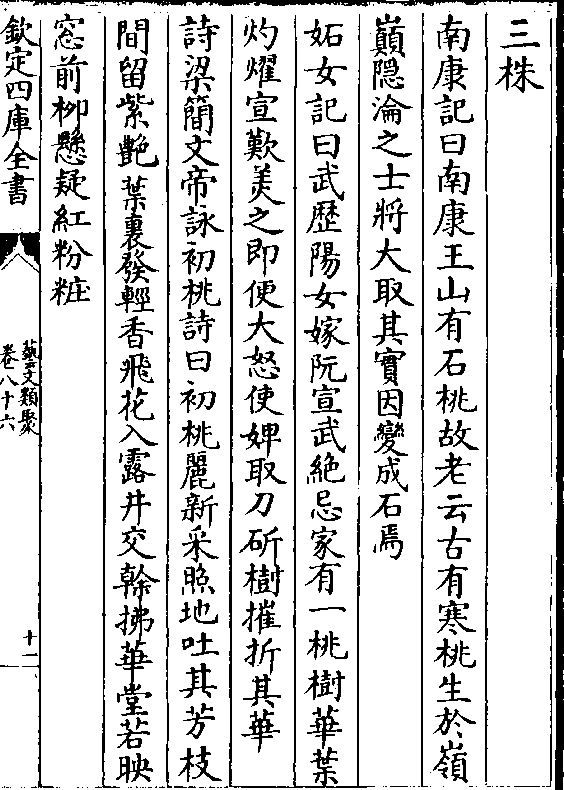 三株
南康記曰南康王山有石桃故老云古有寒桃生於嶺
巔隐淪之士將大取其實因變成石焉
妬女記曰武歴陽女嫁阮宣武絶忌家有一桃樹華葉
灼燿宣歎美之即便大怒使婢取刀斫樹摧折其華
詩梁簡文帝詠初桃詩曰初桃麗新采照地吐其芳枝
間留紫艶葉裏發輕香飛花入露井交幹拂華堂若映
窓前栁懸疑紅粉粧
欽定四庫全書
藝文類聚
卷八十六
十一